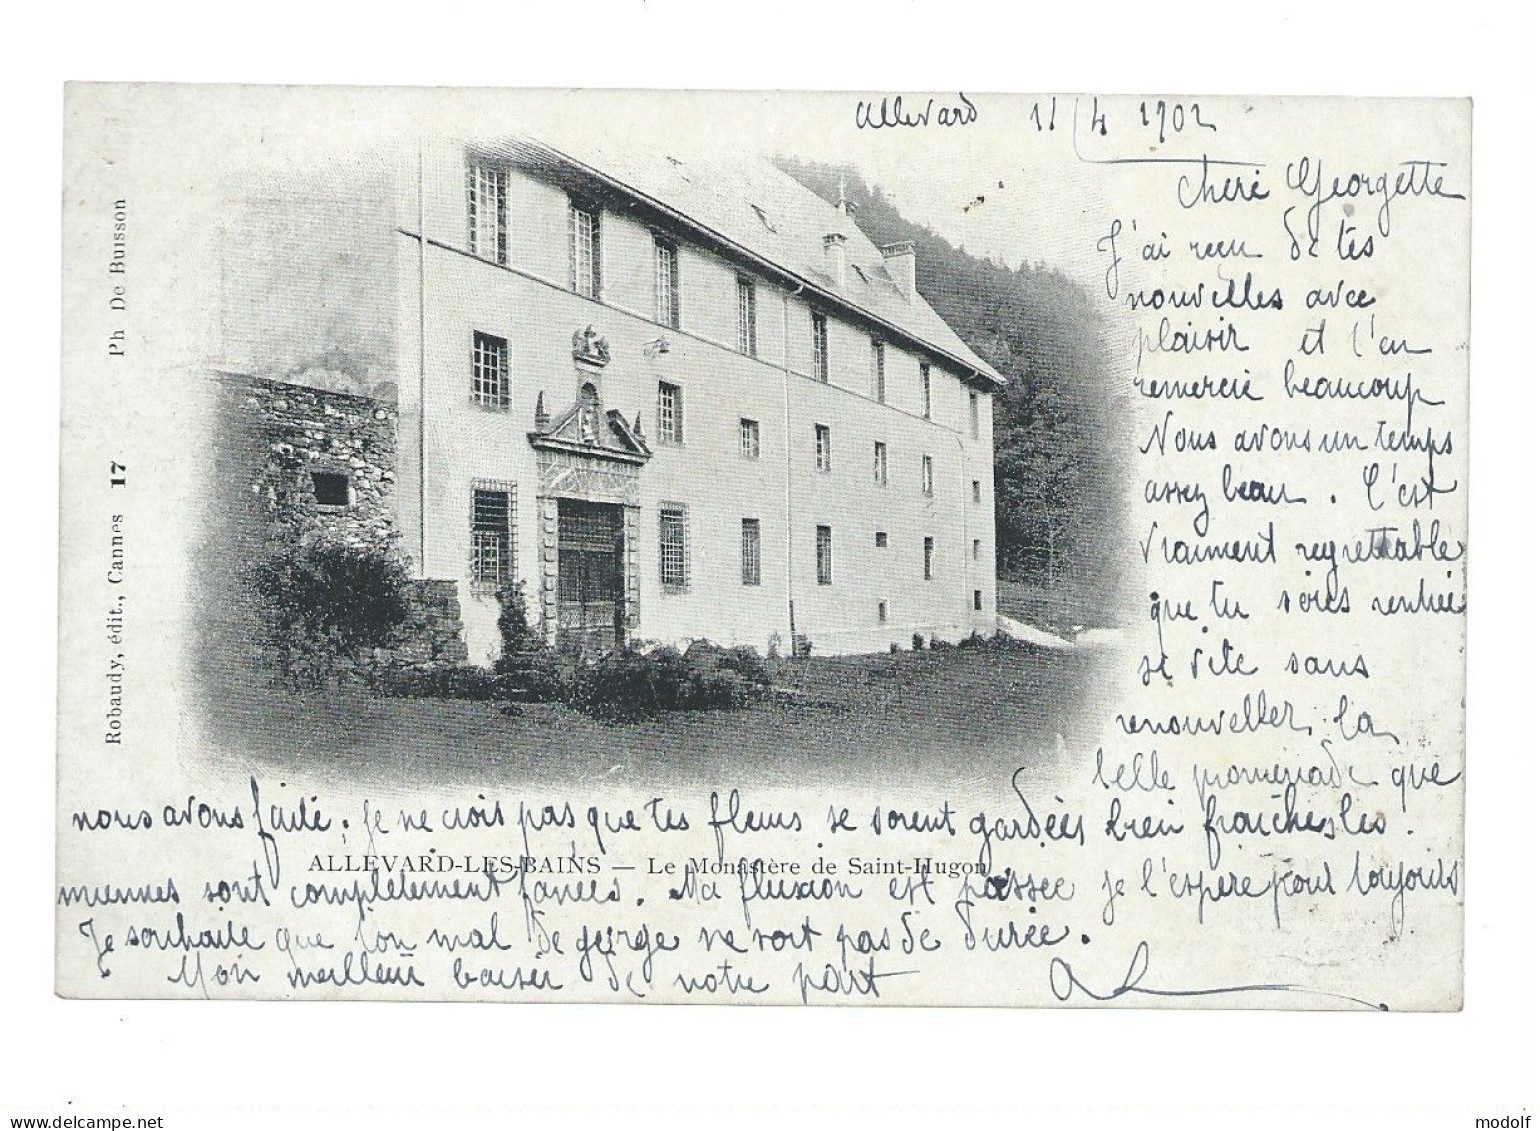 Allevard 11/4 1902
Cheré Georgette
J'ai reçu de tes
nouvelles avec
plaisir et t'en
remercie beaucoup
Nous avons un temps
assez beau. C'est
vraiment regrettable
que tu sois rentrée
si vite sans
renouveller la
belle promenade que
nous avons faite. Je ne crois pas que tes fleurs se soient gardées bien fraîches les
miennes sont complètement fanées. Ma fluxion est passée je l'espère pour toujours
Je souhaite que ton mal de gorge ne soit pas de durée.
Mon meilleur baiser de notre part
ALLEVARD-LES-BAINS — Le Monastère de Saint-Hugon
Robaudy, édit., Cannes 17 Ph De Buisson
delcampe.net
modolf